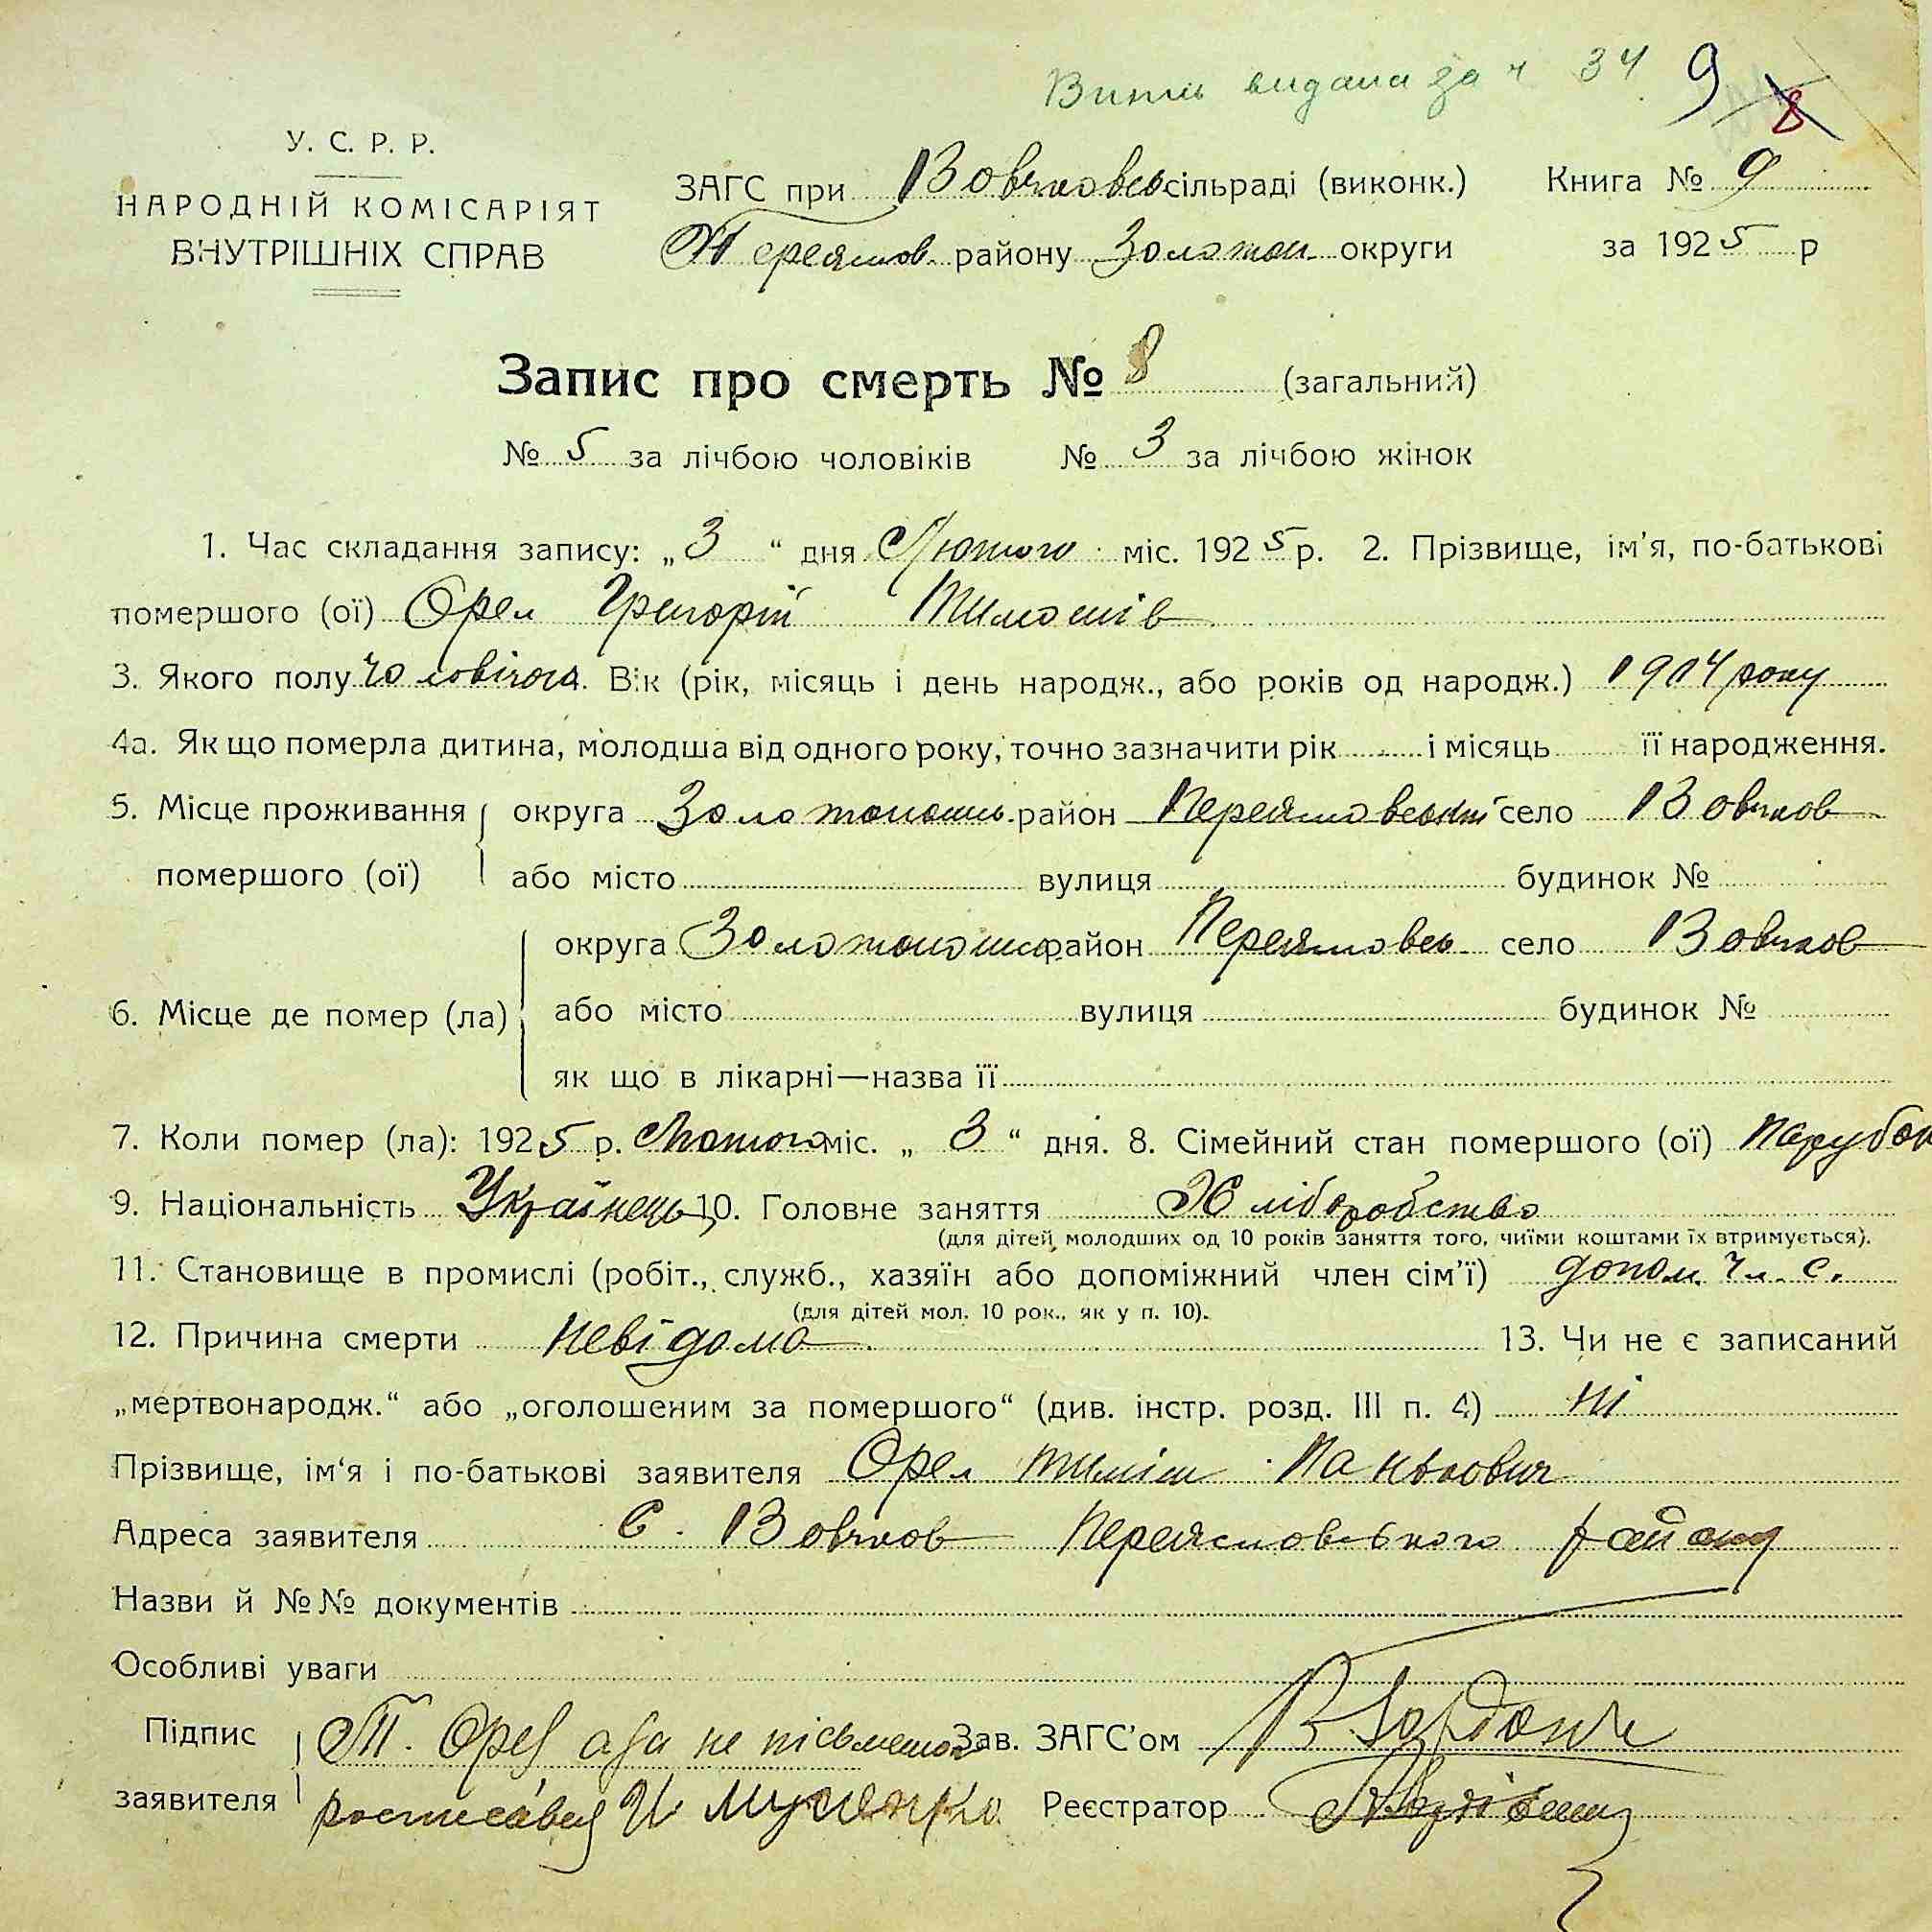 видана за ч 34 9 8
У. С. Р. Р.
НАРОДНІЙ КОМІСАРІЯТ
ВНУТРІШНІХ СПРАВ
ЗАГС при Вовчковсь сільраді (виконк.) Книга № 9
Переяслов. району Золотон. округи за 1925 р
Запис про смерть № 8 (загальний)
№ 5 за лічбою чоловіків № 3 за лічбою жінок
1. Час складання запису: „3“ дня Лютого міс. 1925 р. 2. Прізвище, ім'я, по-батькові
помершого (ої) Орел Григорій Тимошів
3. Якого полу чоловічого. Вік (рік, місяць і день народж., або років од народж.) 1914 року
4а. Як що померла дитина, молодша від одного року, точно зазначити рік і місяць її народження.
5. Місце проживання помершого (ої) округа Золотоношь. район Переясловеский село Вовчков
або місто вулиця будинок №
6. Місце де помер (ла) округа Золотоношь район Переясловсь село Вовчков
або місто вулиця будинок №
як що в лікарні—назва її
7. Коли помер (ла): 1925 р. Лютого міс. „3“ дня. 8. Сімейний стан помершого (ої) парубок
9. Національність Українець 10. Головне заняття Хліборобство
(для дітей молодших од 10 років заняття того, чиїми коштами їх втримується).
11. Становище в промислі (робіт., служб., хазяїн або допоміжний член сім'ї) допом. чл. с.
(для дітей мол. 10 рок., як у п. 10).
12. Причина смерти невідома 13. Чи не є записаний
„мертвонародж.“ або „оголошеним за помершого“ (див. інстр. розд. III п. 4) ні
Прізвище, ім'я і по-батькові заявителя Орел Тиміш Панькович
Адреса заявителя С. Вовчков Переясловського району
Назви й №№ документів
Особливі уваги
Підпис Т. Орел а за не письменого Зав. ЗАГС'ом
заявителя росписався И Мусієнко Реєстратор